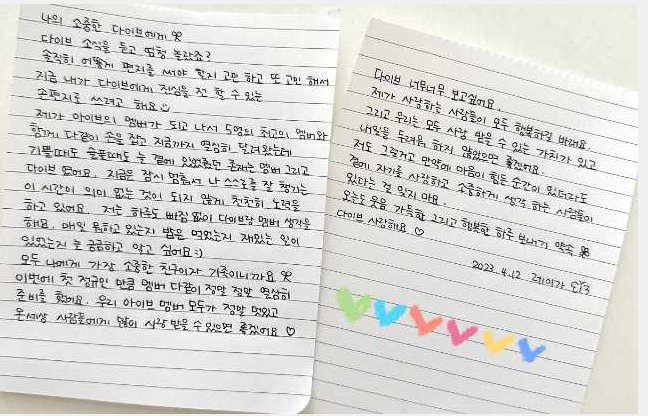 나의 소중한 다이브에게 ୨୧
다이브 소식을 듣고 엄청 놀랐죠?
솔직히 어떻게 편지를 써야 할지 고민 하고 또 고민 해서
지금 내가 다이브에게 진심을 전 할 수 있는
손편지로 쓰려고 해요
제가 아이브의 멤버가 되고 나서 5명의 최고의 멤버와
함께 다같이 손을 잡고 지금까지 열심히 달려왔는데
기쁠때도 슬플때도 늘 곁에 있었줬던 존재는 멤버 그리고
다이브 였어요. 지금은 잠시 멈춰서 나 스스로를 잘 챙기는
이 시간이 의미 없는 것이 되지 않게 천천히 노력을
하고 있어요. 저는 하루도 빠짐 없이 다이브랑 멤버 생각을
해요. 매일 뭐하고 있는지 밥은 먹었는지 재밌는 일이
있었는지 늘 궁금하고 알고 싶어요 :)
모두 나에게 가장 소중한 친구이자 가족이니까요 ୨୧
이번에 첫 정규인 만큼 멤버 다같이 정말 정말 열심히
준비를 했어요. 우리 아이브 멤버 모두가 정말 멋있고
온세상 사람들에게 많이 사랑 받을 수 있으면 좋겠어요 ♡
다이브 너무너무 보고싶어요.
제가 사랑하는 사람들이 모두 행복하길 바래요.
그리고 우리는 모두 사랑 받을 수 있는 가치가 있고
내일을 두려움 하지 않았으면 좋겠어요.
저도 그렇거고 만약에 마음이 힘든 순간이 있더라도
곁에 자기를 사랑하고 소중하게 생각 하는 사람들이
있다는 걸 잊지 마요.
오늘도 웃음 가득한 그리고 행복한 하루 보내기 약속
다이브 사랑해요 ♡
2023.4.12 레이가